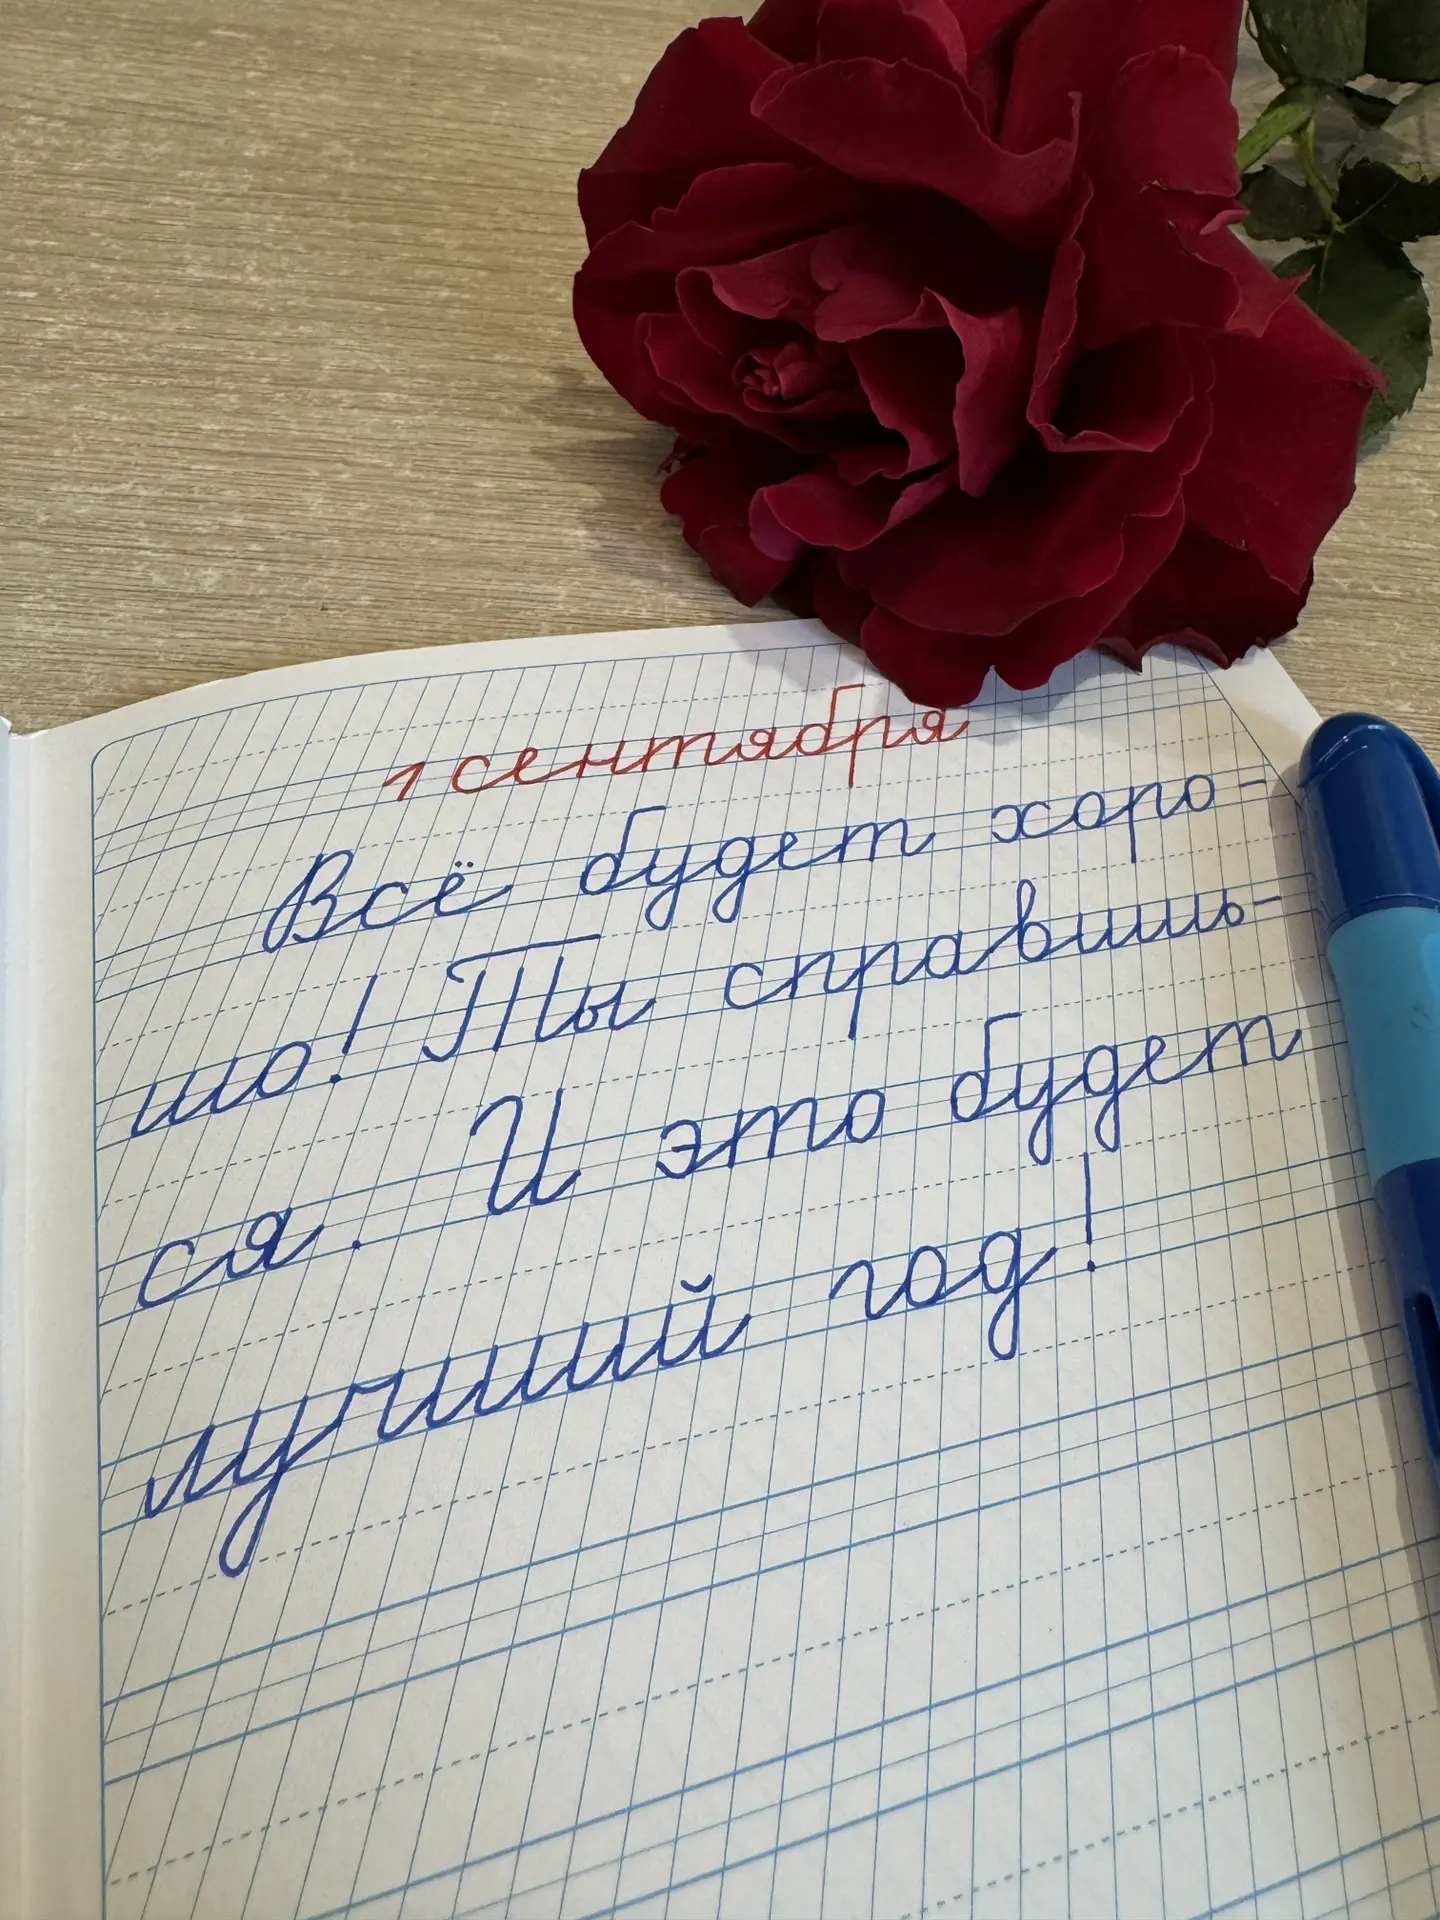 1 сентября
Всё будет хоро-
шо! Ты справишь-
ся. И это будет
лучший год!